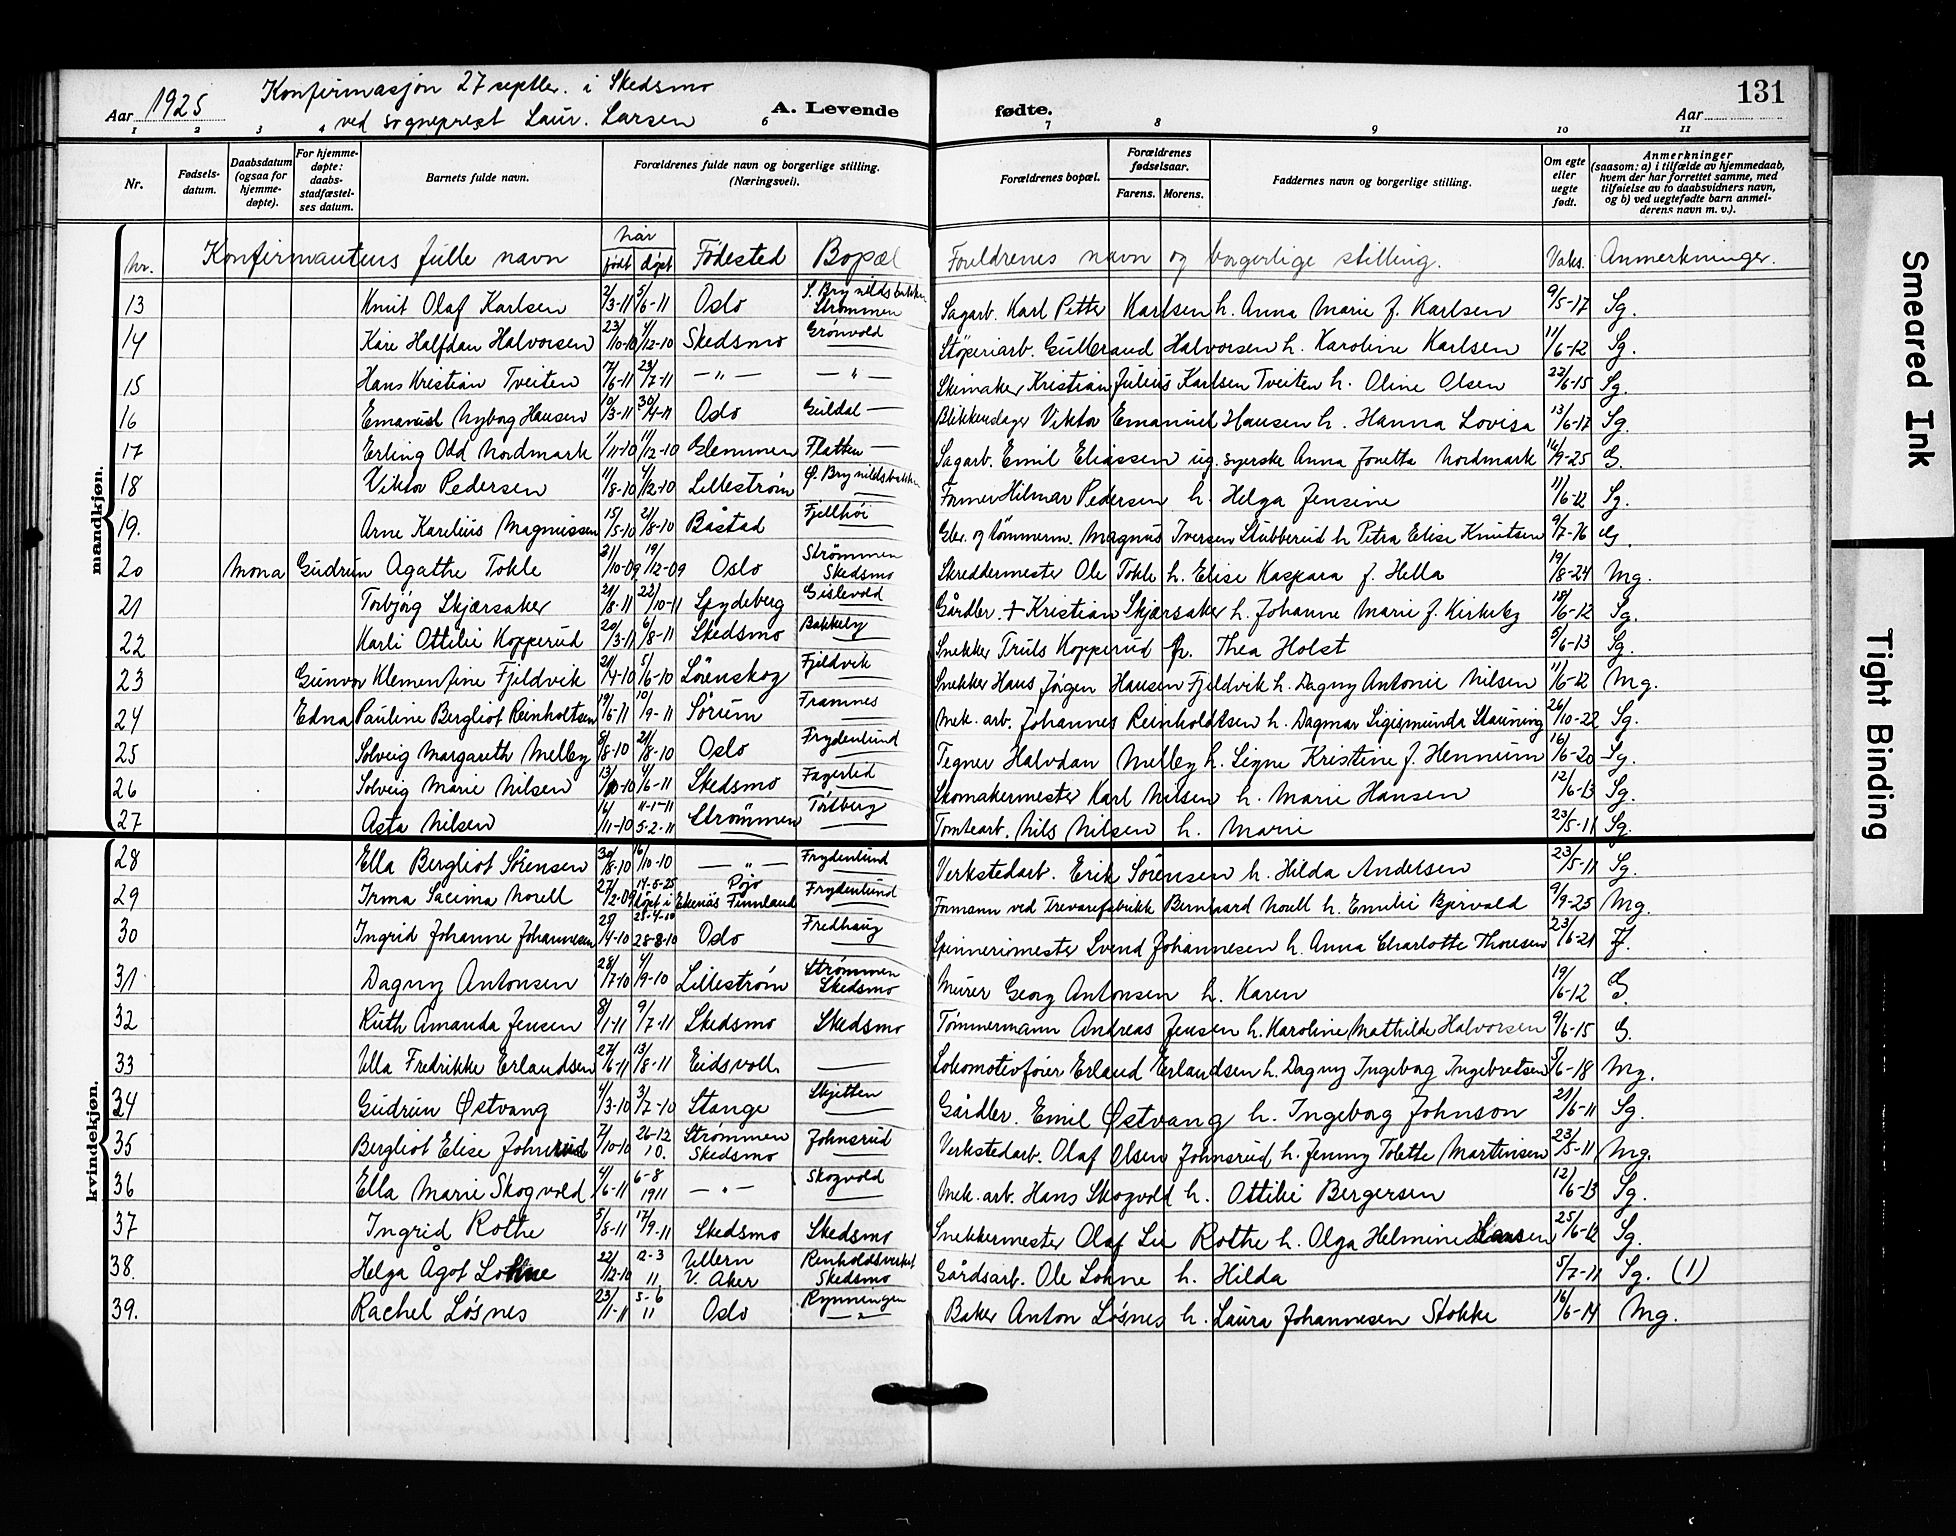 Aar 1925 Konfirmasjon 27 septbr. i Skedsmo
ved sogneprest Laur. Larsen
A. Levende fødte.
131
Aar
1 2 3 4 6 7 8 9 10 11
Nr.
Fødsels-
datum.
Daabsdatum
(ogsaa for
hjemme-
døpte).
For hjemme-
døpte:
daabs-
stadfæstel-
ses datum.
Barnets fulde navn.
Forældrenes fulde navn og borgerlige stilling.
(Næringsvei).
Forældrenes bopæl.
Forældrenes
fødselsaar.
Farens. Morens.
Faddernes navn og borgerlige stilling.
Om egte
eller
uegte
født.
Anmerkninger
(saasom: a) i tilfælde av hjemmedaab,
hvem der har forrettet samme, med
tilføielse av to daabsvidners navn,
og b) ved uegtefødte barn anmel-
derens navn m. v.).
mandkjøn.
kvindekjøn.
Nr. Konfirmantens fulle navn når født døpt Fødested Bopæl Foreldrenes navn og borgerlige stilling. Vaks. Anmerkninger.
13 Knut Olaf Karlsen 2/3-11 5/6-11 Oslo S. Brynildsbakken Strømmen Sagarb. Karl Petter Karlsen h. Anna Marie f. Karlsen 9/5-17 Sg.
14 Kåre Halfdan Halvorsen 23/10-10 4/12-10 Skedsmo Grönvold Støperiarb. Gulbrand Halvorsen h. Karoline Karlsen 11/6-12 Sg.
15 Hans Kristian Tveiten 7/6-11 23/7-11 —„— —„— Skimaker Kristian Julius Karlsen Tveiten h. Oline Olsen 22/6-15 Sg.
16 Emanuel Nyborg Hansen 10/3-11 30/4-11 Oslo Guldal — Blikkenslager Viktor Emanuel Hansen h. Hanna Lovisa 13/6-17 Sg.
17 Erling Odd Nordmark 1/11-10 11/12-10 Glemmen Flatten — Sagarb. Emil Eliassen ug. syerske Anna Jonetta Nordmark 16/9-25 G.
18 Viktor Pedersen 11/8-10 4/12-10 Lillestrøm Ø. Brynildsbakken Former Hilmar Pedersen h. Helga Jensine 11/6-12 Sg.
19. Arne Karelius Magnussen 15/5-10 21/8-10 Båstad Fjellhöi Gbr. og tömmerm. Magnus Iversen Stubberud h Petra Elise Knutsen 9/7-16 G.
20 Mona Gudrun Agathe Tokle 31/10-09 19/12-09 Oslo Strömmen Skedsmo Skreddermester Ole Tokle h. Elise Kaspara f. Hella 19/8-24 Mg.
21 Torbjørg Skjærsaker 21/8-11 22/10-11 Spydeberg Gislevold Gårdbr. + Kristian Skjærsaker h. Johanne Marie f. Kirkeby 18/6-12 Sg.
22 Karli Ottilie Kopperud 20/3-11 6/8-11 Skedsmo Bakkeby Snekker Truls Kopperud h. Thea Holst 5/6-13 Sg.
23 Gunvor Klementine Fjeldvik 21/4-10 5/6-10 Lörenskog Fjeldvik Snekker Hans Jörgen Hansen Fjeldvik h. Dagny Antonie Nilsen 11/6-12 Mg.
24 Edna Pauline Bergliot Reinholtsen 19/6-11 10/9-11 Sörum Framnes Mek. arb. Johannes Reinholdtsen h. Dagmar Sigismunda Stauning 26/10-22 Sg.
25 Solveig Margareth Melby 8/8-10 21/8-10 Oslo Frydenlund Tegner Halvdan Melby h. Signe Kristine f. Hennum 16/6-20 Sg.
26 Solveig Marie Nilsen 13/10-10 4/6-11 Skedsmo Fagerlid Skomakermester Karl Nilsen h. Marie Hansen 12/6-13 Sg.
27 Asta Nilsen 16/11-10 11-1-11 5-2-11 Strömmen Törtberg Tomtearb. Nils Nilsen h. Marie 23/5-11 Sg.
28 Ella Bergliot Sörensen 30/8-10 16/10-10 —„— Frydenlund Verkstedarb. Erik Sörensen h. Hilda Andersen 23/5-11 Sg.
29 Irma Sacima Norell 27/2-09 14-5-25 døpt i Pöjo Ekenäs Finnland Frydenlund Formann ved Trevarefabrikk Bernhard Norell h. Emilie Bjørvald 9/9-25 Mg.
30 Ingrid Johanne Johannesen 25/4-10 28-8-10 Oslo Fredhaug Spinnerimester Svend Johannesen h. Anna Charlotte Thoresen 23/6-21
31 Dagny Antonsen 28/7-10 4/9-10 Lillestrøm Strømmen Skedsmo Murer Georg Antonsen h. Karen 19/6-12 G.
32 Ruth Amanda Jensen 8/1-11 9/7-11 Skedsmo Skedsmo Tømmermann Andreas Jensen h. Karoline Mathilde Halvorsen 9/6-15 G.
33 Ulla Fredrikke Erlandsen 27/6-11 13/8-11 Eidsvoll — Lokomotivfører Erland Erlandsen h. Dagny Ingeborg Ingebretsen 5/6-18 Mg.
34 Gudrun Østvang 4/3-10 3/7-10 Stange Skjetten Gårdbr. Emil Østvang h. Ingeborg Johnson 21/6-11 Sg.
35 Bergliot Elise Johnsrud 2/10-10 26-12 10. Strømmen Skedsmo Johnsrud Verkstedarb. Olaf Olsen Johnsrud h. Jenny Tolette Martinsen 23/5-11 Mg.
36 Ella Marie Skogvold 4/6-11 6-8 1911 —„— Skogvold Mek. arb. Hans Skogvold h. Ottilie Bergersen 12/6-13 Sg.
37 Ingrid Rothe 5/8-11 17/9-11 Skedsmo Skedsmo Snekkermester Olaf Lie Rothe h. Olga Helmine Hansen 25/6-12 Sg.
38 Helga Ågot Lohne 22/12-10 2-3 11 Ullern V. Aker Renholdsverket Skedsmo Gårdsarb. Ole Lohne h. Hilda 5/7-11 Sg. (1)
39. Rachel Løsnes 23/1-11 5-6 11 Oslo Rynningen —„— Baker Anton Løsnes h. Laura Johannesen Stokke 16/6-14 Mg.
Smeared Ink
Tight Binding